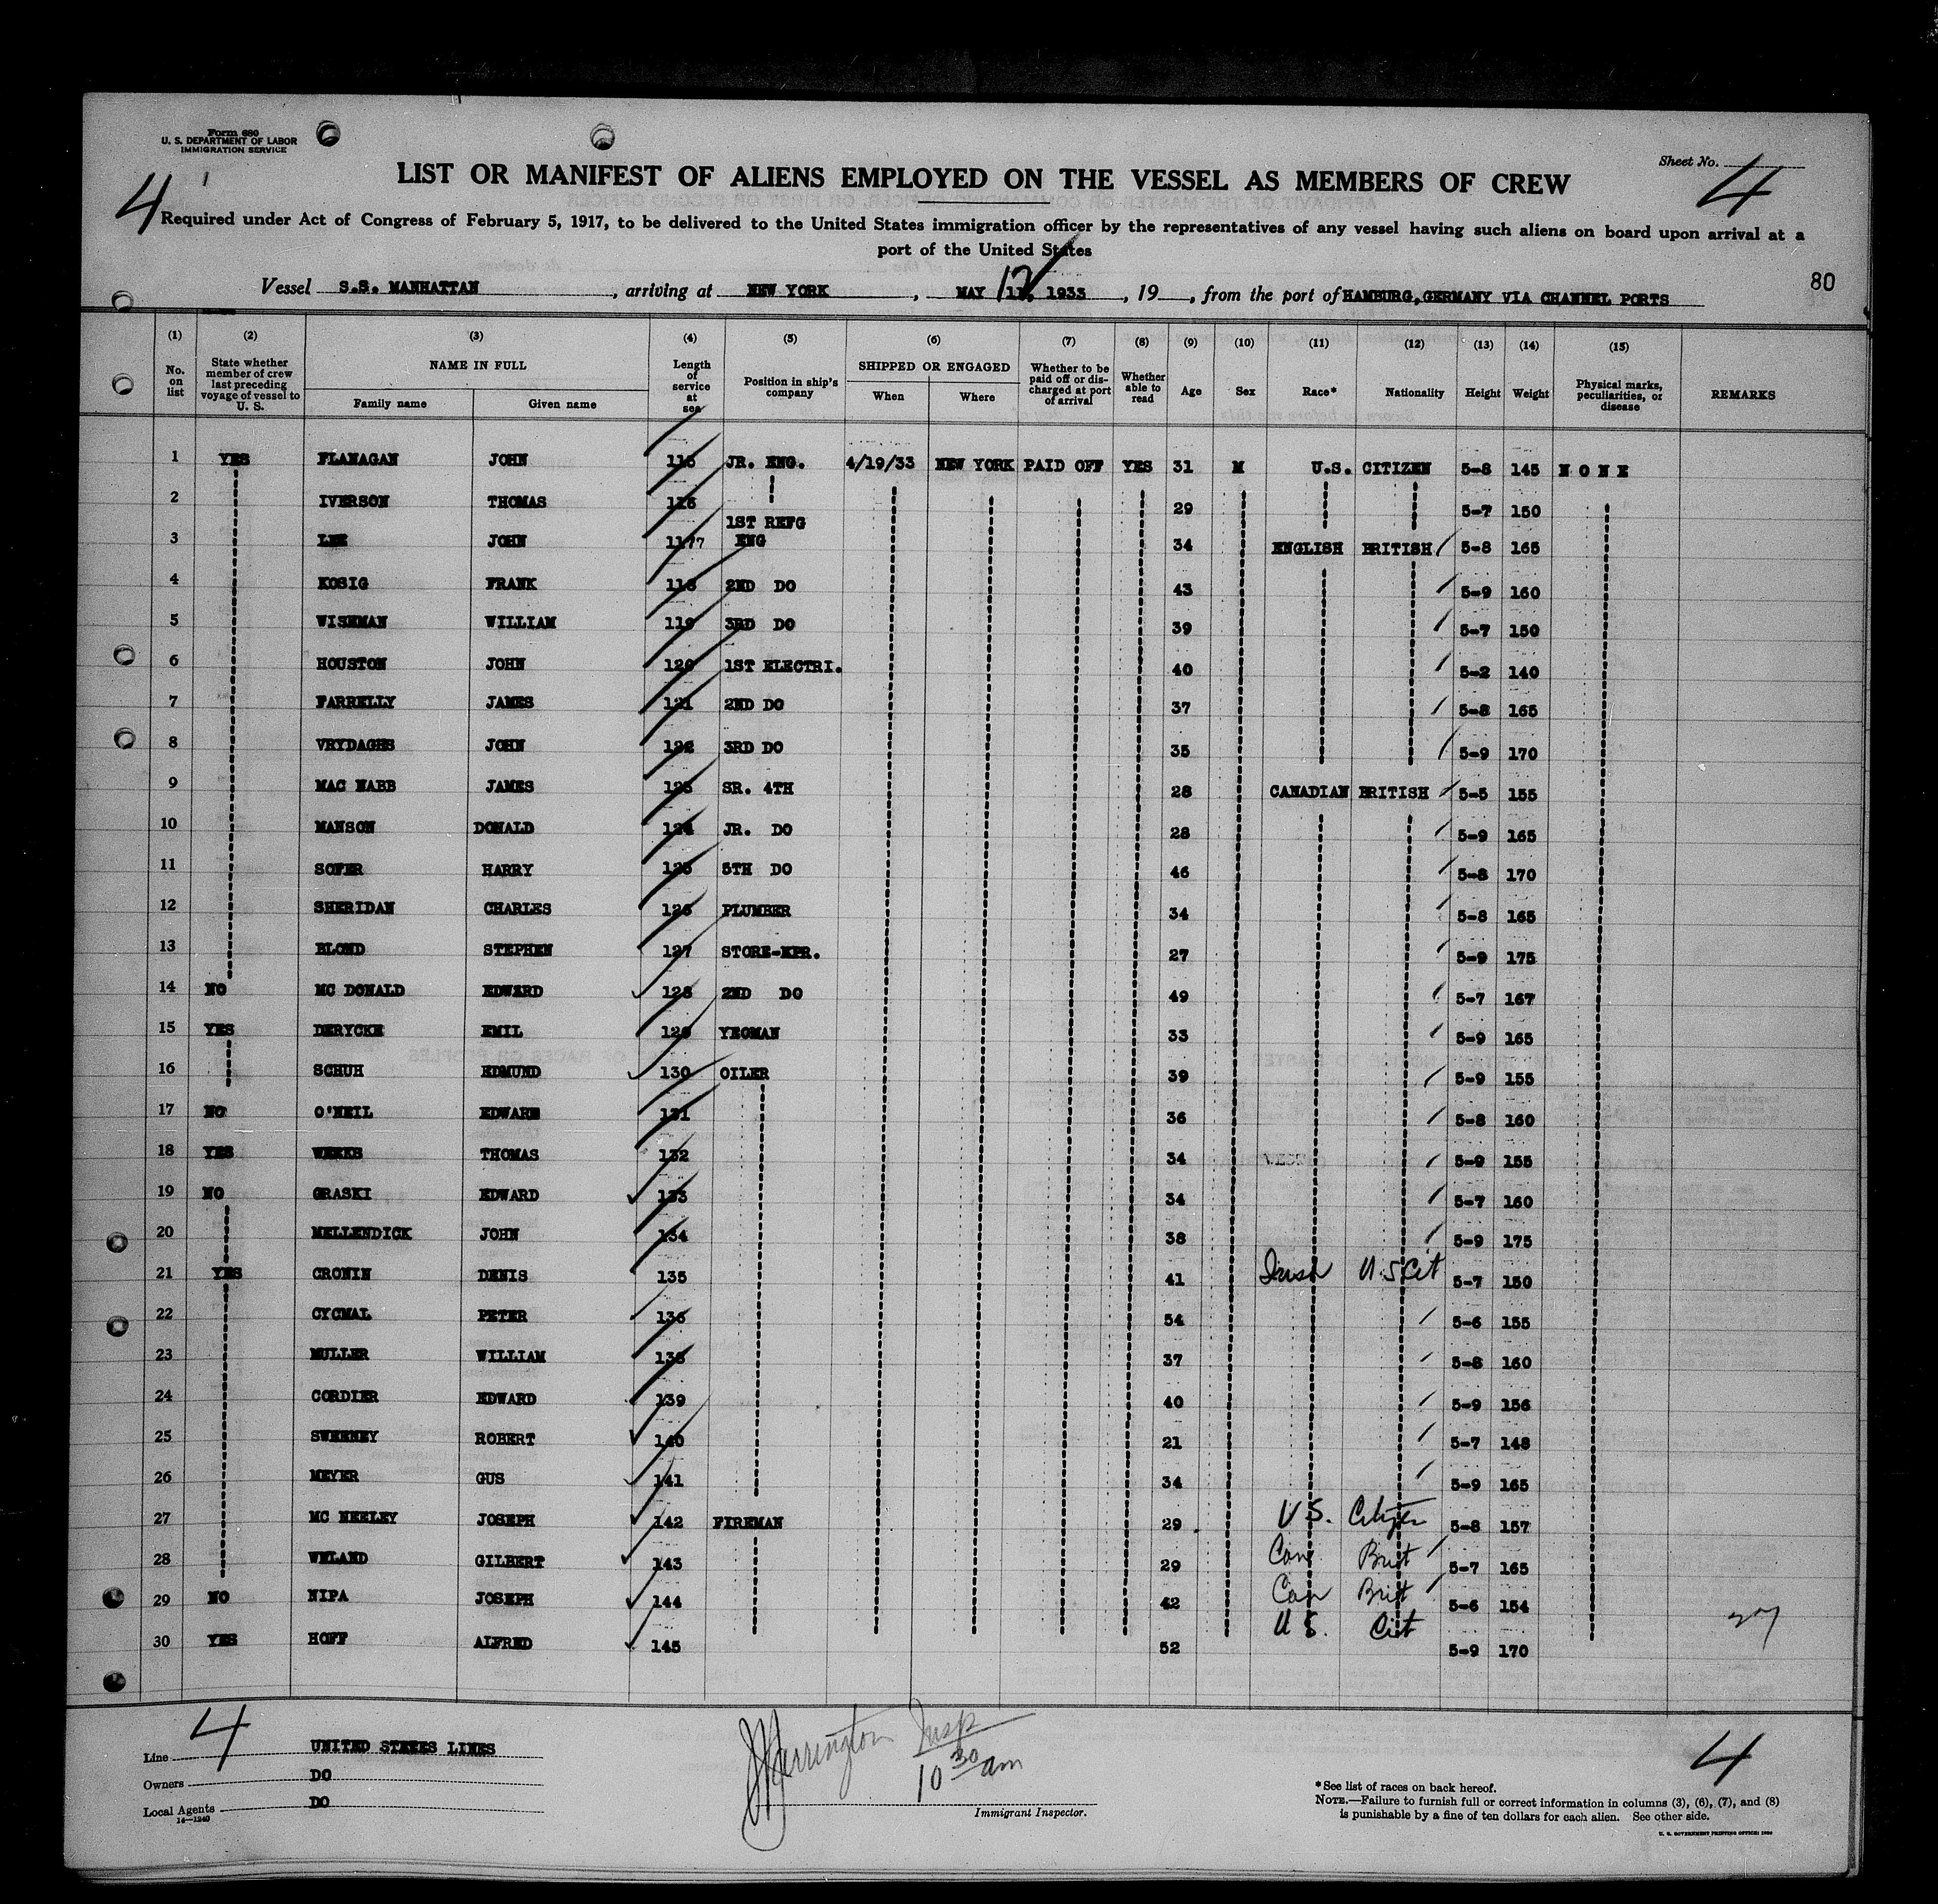 Form 680
U. S. DEPARTMENT OF LABOR
IMMIGRATION SERVICE
Sheet No. 4
4
LIST OR MANIFEST OF ALIENS EMPLOYED ON THE VESSEL AS MEMBERS OF CREW
Required under Act of Congress of February 5, 1917, to be delivered to the United States immigration officer by the representatives of any vessel having such aliens on board upon arrival at a
port of the United States
80
Vessel S.S. MANHATTAN, arriving at NEW YORK, MAY 12, 1933, 19, from the port of HAMBURG,GERMANY VIA CHANNEL PORTS
(1) (2) (3) (4) (5) (6) (7) (8) (9) (10) (11) (12) (13) (14) (15)
No. on list State whether member of crew last preceding voyage of vessel to U. S. NAME IN FULL Family name Given name Length of service at sea Position in ship's company SHIPPED OR ENGAGED When Where Whether to be paid off or discharged at port of arrival Whether able to read Age Sex Race* Nationality Height Weight Physical marks, peculiarities, or disease REMARKS
1 YES FLANAGAN JOHN 115 JR. ENG. 4/19/33 NEW YORK PAID OFF YES 31 M U.S. CITIZEN 5-8 145 NONE
2 IVERSON THOMAS 116 29 5-7 150
3 LEE JOHN 1177 1ST REFG ENG 34 ENGLISH BRITISH 5-8 165
4 KOSIG FRANK 118 2ND DO 43 5-9 160
5 WISEMAN WILLIAM 119 3RD DO 39 5-7 150
6 HOUSTON JOHN 120 1ST ELECTRI. 40 5-2 140
7 FARRELLY JAMES 121 2ND DO 37 5-8 165
8 VRYDAGHS JOHN 122 3RD DO 35 5-9 170
9 MAC NABB JAMES 123 SR. 4TH 28 CANADIAN BRITISH 5-5 155
10 MANSON DONALD 124 JR. DO 28 5-9 165
11 SOFER HARRY 125 5TH DO 46 5-8 170
12 SHERIDAN CHARLES 126 PLUMBER 34 5-8 165
13 BLOND STEPHEN 127 STORE-KPR. 27 5-9 175
14 NO MC DONALD EDWARD 128 2ND DO 49 5-7 167
15 YES DERYCKE EMIL 129 YEOMAN 33 5-9 165
16 SCHUH EDMUND 130 OILER 39 5-9 155
17 NO O'NEIL EDWARD 131 36 5-8 160
18 YES WEEKS THOMAS 132 34 5-9 155
19 NO GRASKI EDWARD 133 34 5-7 160
20 MELLENDICK JOHN 134 38 5-9 175
21 YES CRONIN DENIS 135 41 Irish U.S Cit 5-7 150
22 CYCMAL PETER 136 54 5-6 155
23 MULLER WILLIAM 138 37 5-8 160
24 CORDIER EDWARD 139 40 5-9 156
25 SWEENEY ROBERT 140 21 5-7 148
26 MEYER GUS 141 34 5-9 165
27 MC NEELEY JOSEPH 142 FIREMAN 29 U S. Citizen 5-8 157
28 WELAND GILBERT 143 29 Can Brit 5-7 165
29 NO NIPA JOSEPH 144 42 Can Brit 5-6 154
30 YES HOFF ALFRED 145 52 U S. Cit 5-9 170
27
4
Line UNITED STATES LINES
Owners DO
Local Agents DO
14—1240
Harrington Insp
10 30 am
Immigrant Inspector.
4
*See list of races on back hereof.
NOTE.—Failure to furnish full or correct information in columns (3), (6), (7), and (8)
is punishable by a fine of ten dollars for each alien. See other side.